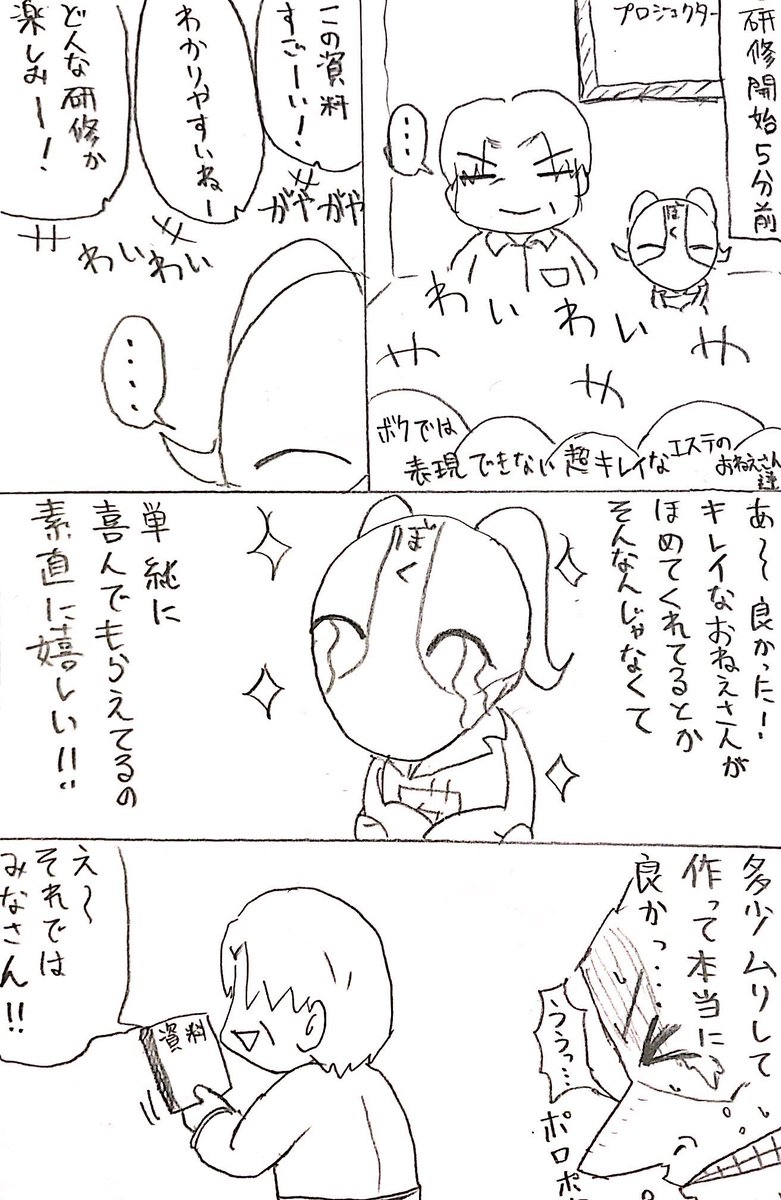 研修開始5分前
プロジェクター
ぼく
・・・
わいわい
ボクでは
表現できない
超キレイな
エステの
おねえさん
達
この資料
すごーい!
わかりやすいねー
どんな研修か
楽しみー!
がやがや
わいわい
・・・・
あ〜〜良かった!
キレイなおねえさんが
ほめてくれてるとか
そんなんじゃなくて
ぼく
単純に
喜んでもらえてるの
素直に嬉しい!!
多少ムリして
作って本当に
良かっ・・・・
ううっ…
ポロポ
資料
え〜
それでは
みなさん!!